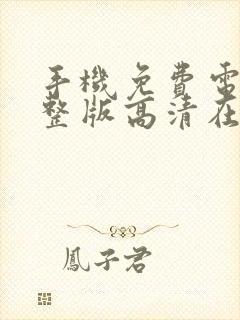 手機免費電
整版高清在
鳳子君